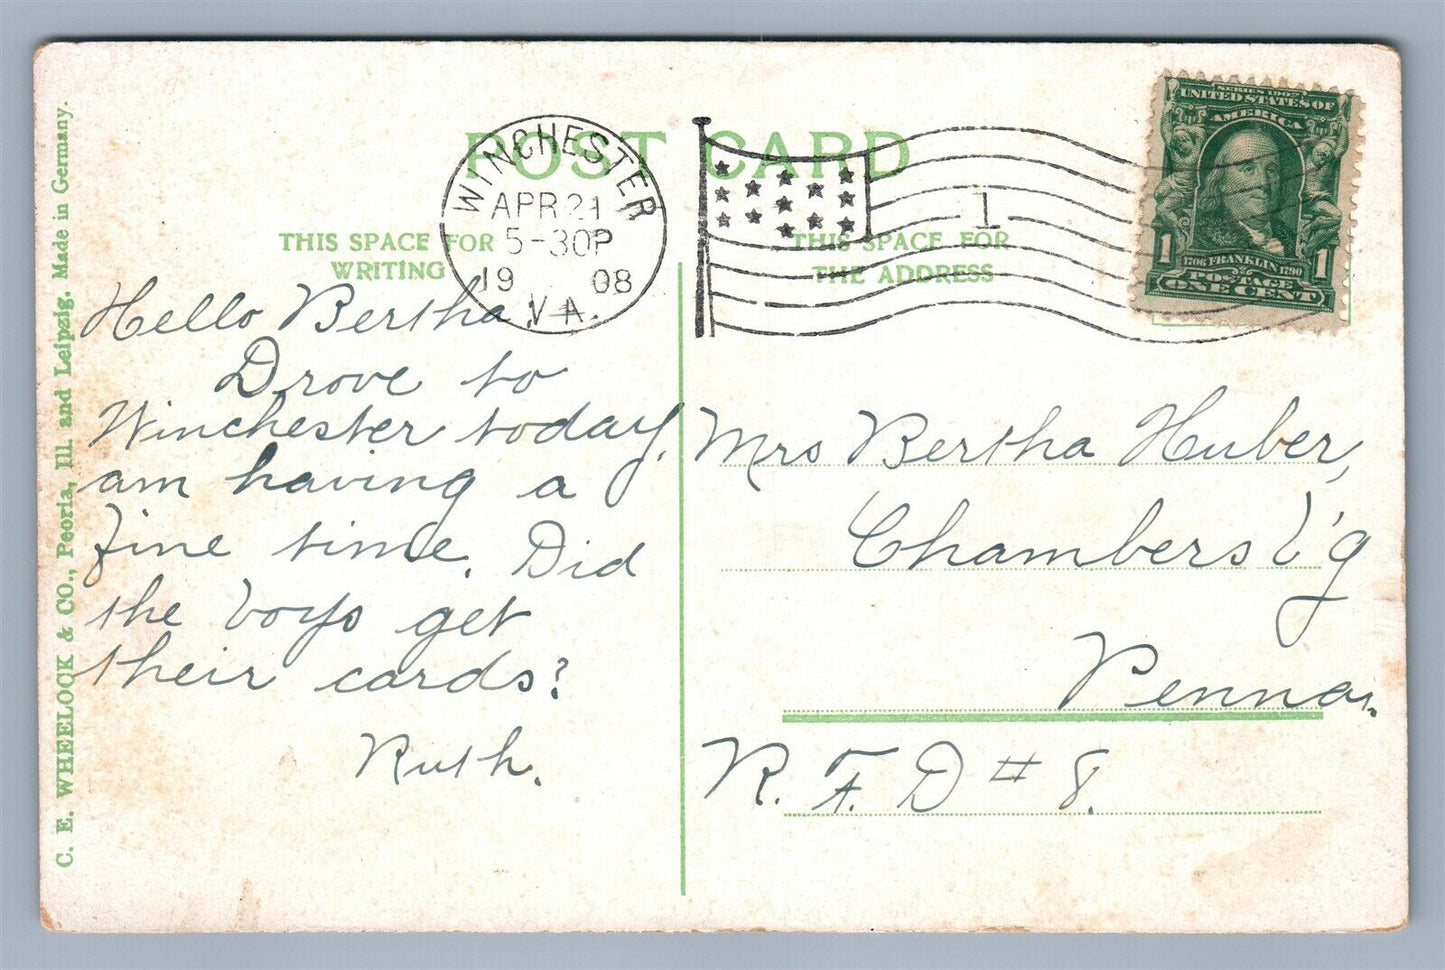 POST CARD
WINCHESTER
APR 21
5-30P
1908
VA.
1
SERIES 1902
UNITED STATES OF
AMERICA
1 1
1706 FRANKLIN 1790
POSTAGE
ONE CENT
THIS SPACE FOR
WRITING
THIS SPACE FOR
THE ADDRESS
Hello Bertha
Drove to
Winchester today,
am having a
fine time. Did
the boys get
their cards?
Ruth.
Mrs Bertha Huber,
Chambersb'g
Penna.
R. F. D # 8.
C. E. WHEELOCK & CO., Peoria, Ill. and Leipzig. Made in Germany.